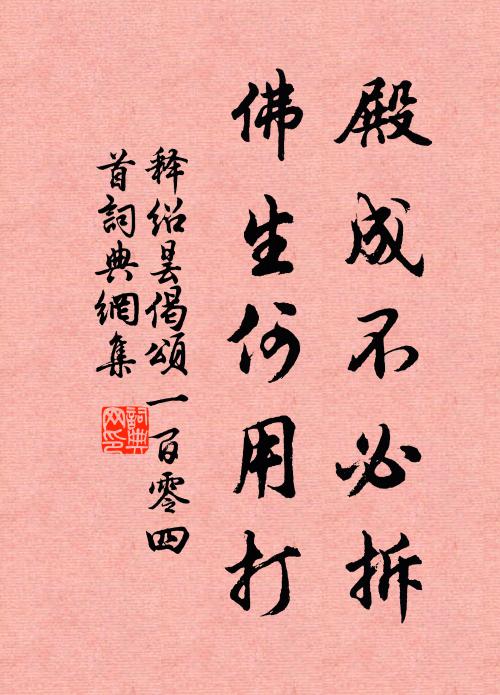 殿成不必拆
佛生何用打
释绍昙偈颂一百零四
首詞典網集
詞典网印